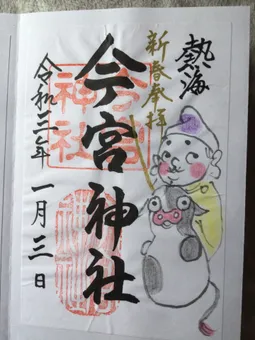 熱海
新春奉拝
今宮神社
令和三年 一月三日
今宮神社